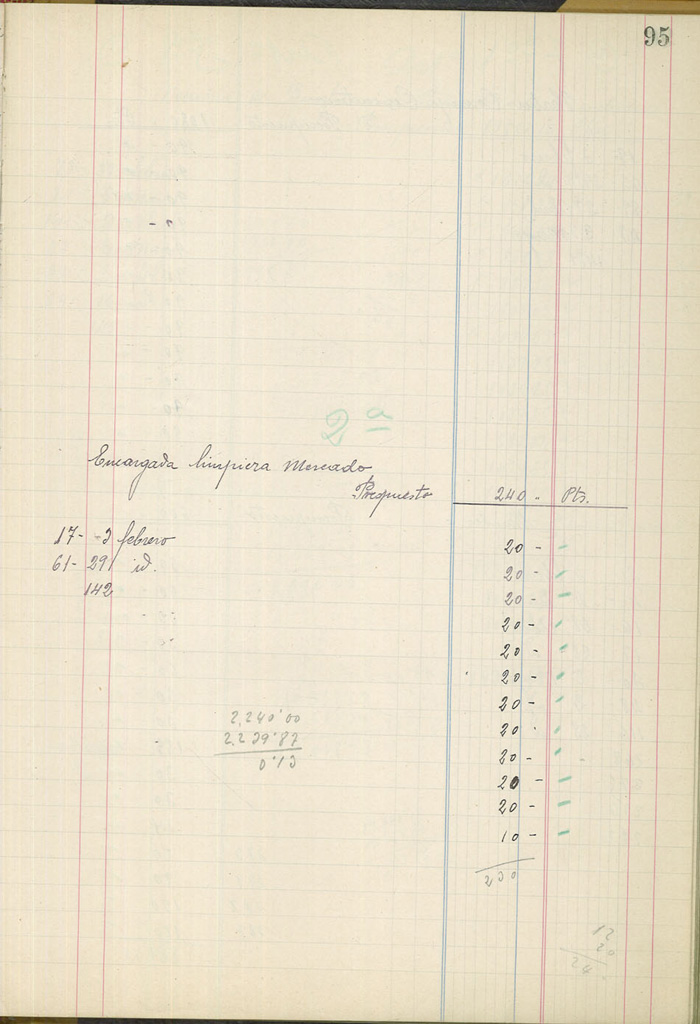 95
2ª
Encargada limpieza Mercado
Prequesto 240 - Pts.
17- -3 febrero 20 -
61- 29 id. 20 -
142 20 -
20 -
20 -
20 -
20 -
2,240'00 20 -
2.239'87 20 -
0'13 20 -
20 -
10 -
230
12
20
24